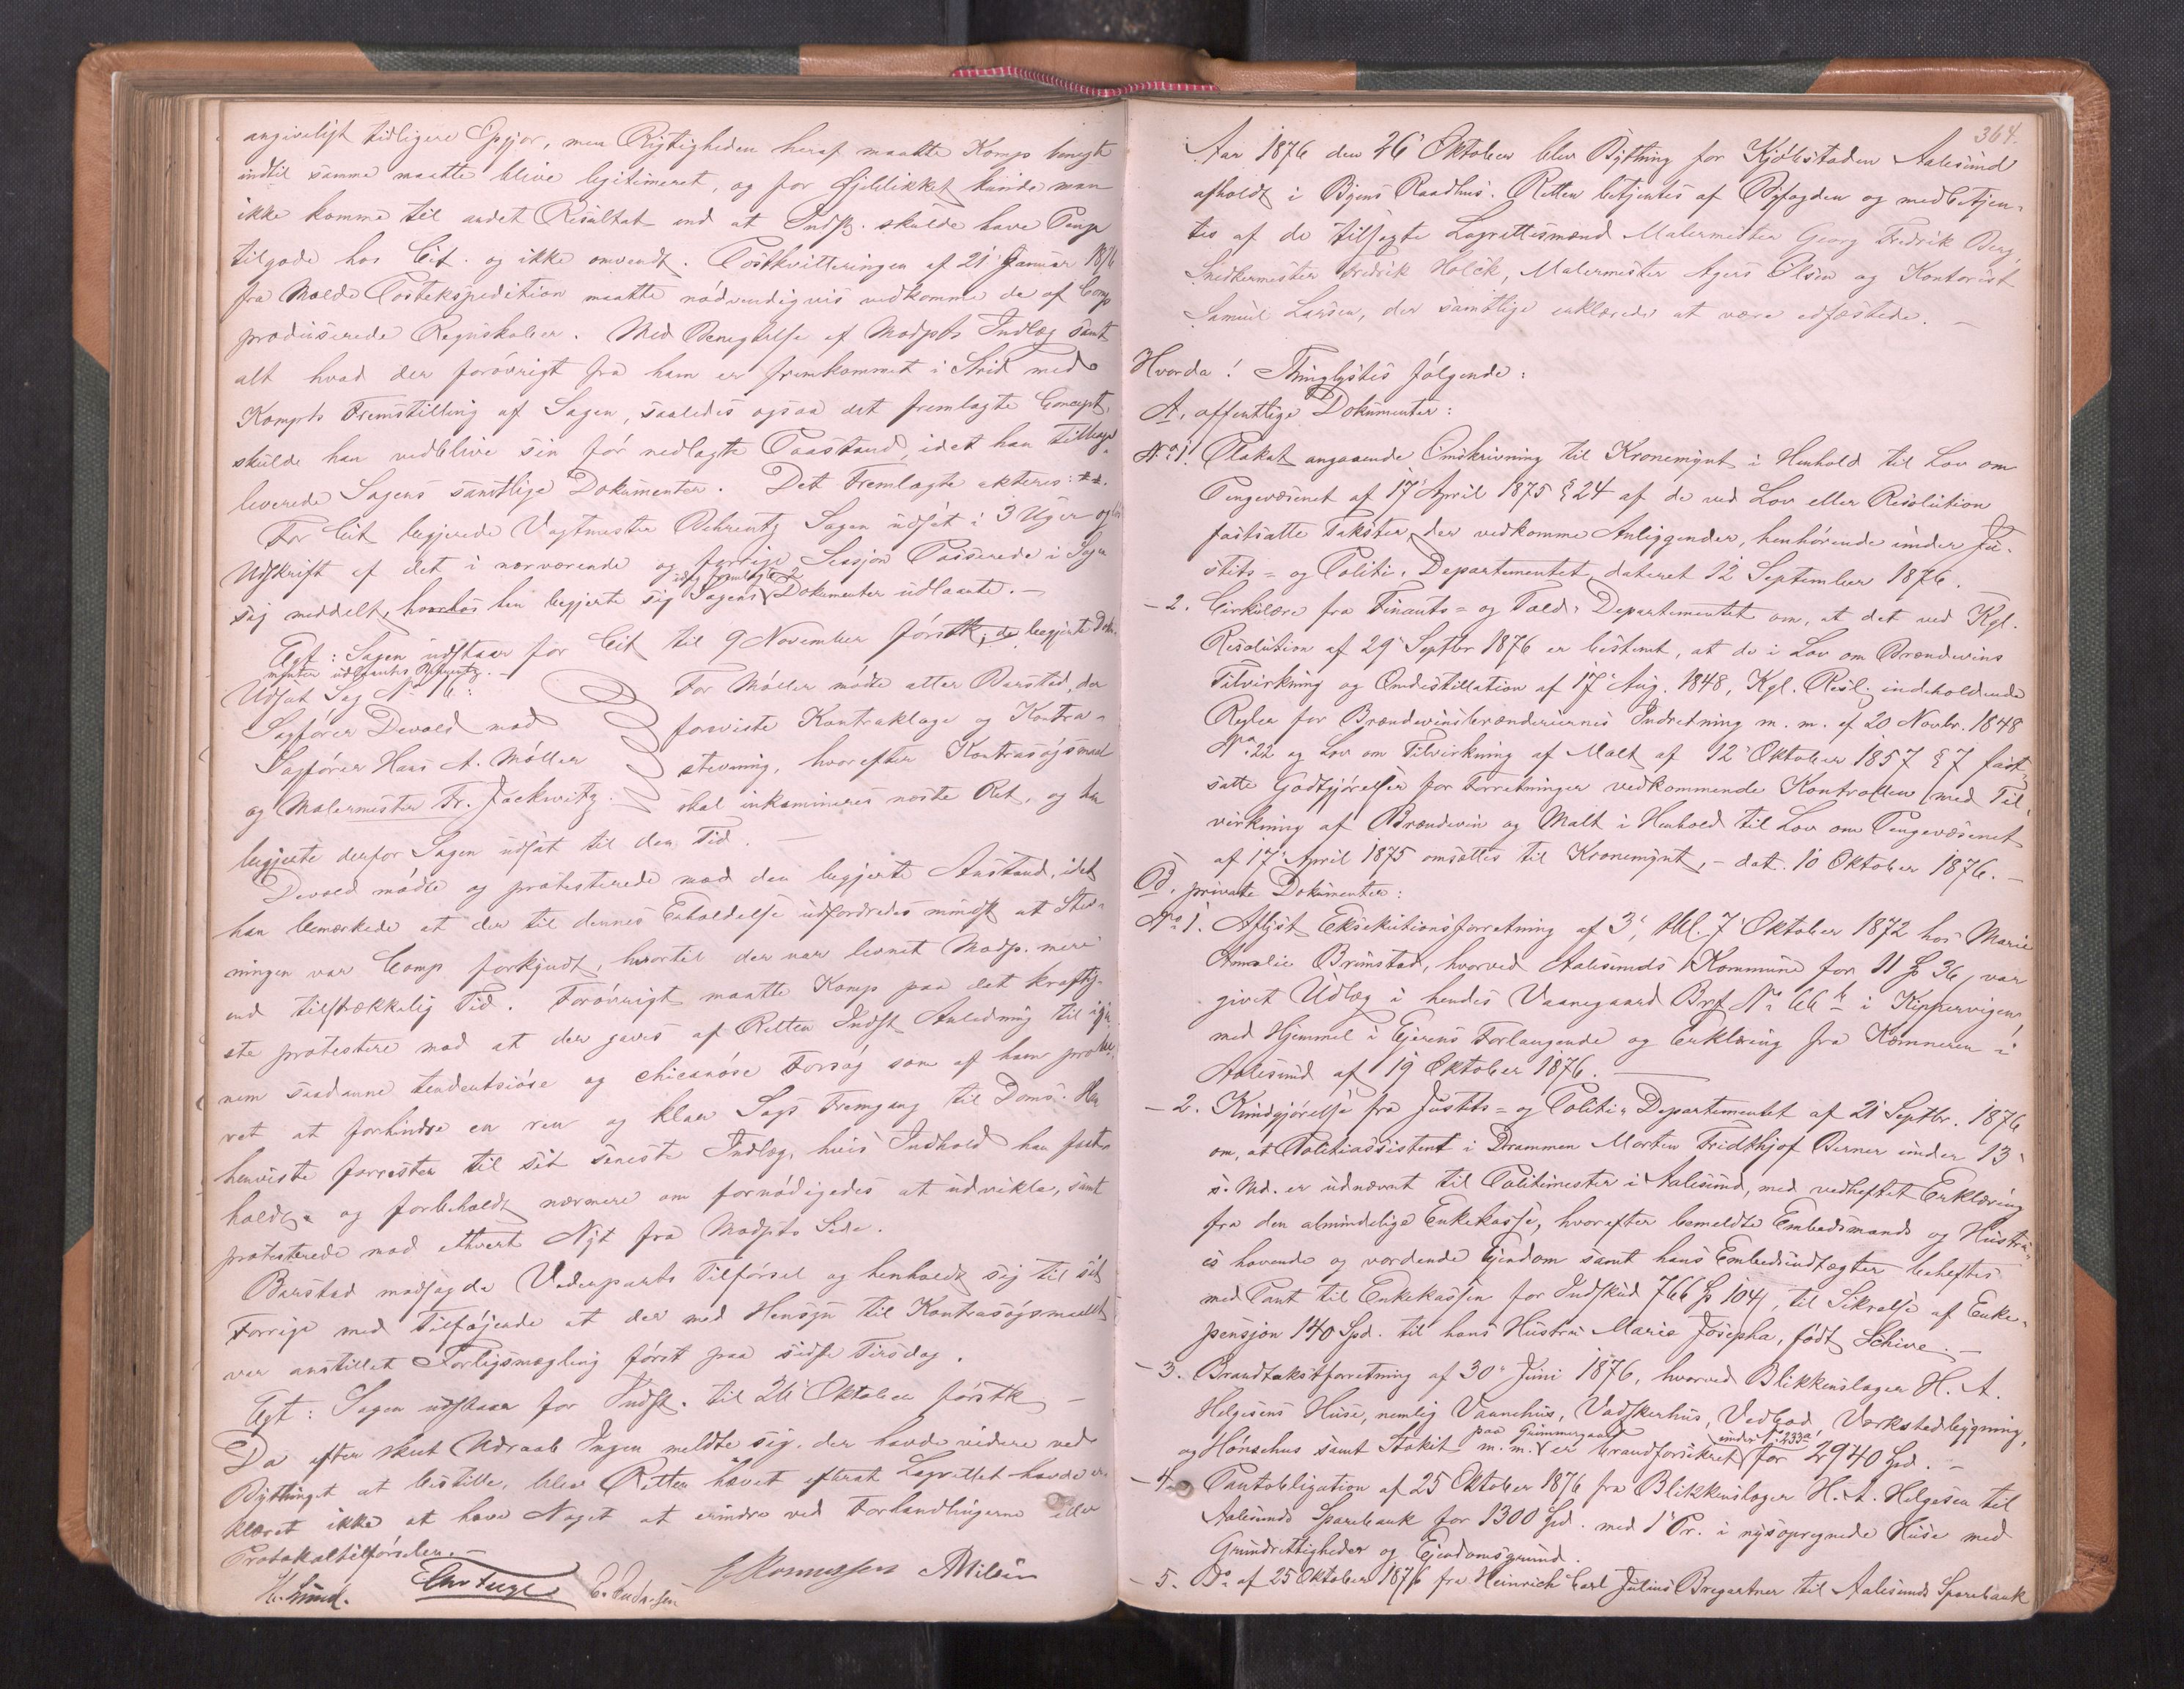 angiveligt tidligere Opgjør, men Rigtigheden heraf maatte Komp benegte
indtil samme maatte blive legitimeret, og for Øieblikket kunde man
ikke komme til andet Resultat end at Indst. skulde have Penge
tilgode hos Cit. og ikke omvendt. Postkvitteringen af 21 Januar 1876
fra Molde Postekspedition maatte nødvendigvis vedkomme de af Comp
produserede Regnskaber. Med Benegtelse af Modpts Indlæg samt
alt hvad der forøvrigt fra ham er fremkommet i Strid med
Komprts Fremstilling af Sagen, saaledes ogsaa det fremlagte Concept,
skulde han vedblive sin før nedlagte Paastand, idet han tilbage
leverede Sagens samtlige Dokumenter. Det Fremlagte akteres:
For Cit. begjerede Vagtmester Behrentz Sagen udsat i 3 Uger og
Udskrift af det i nærværende og forrige Session Passerede i Sagen
sig meddelt, hvorhos han begjerte sig Sagens Dokumenter udlaante. —
Agt: Sagen udstaar for Cit til 9 November førstk, de begjerte Doku-
menter udlaantes Behrentz. —
Udsat Sag No 6:
Sagfører Devold mod
Sagfører Hans A. Møller
og Malermester Fr. Jackwitz.
For Møller mødte atter Barstad, der
foreviste Kontraklage og Kontra-
stevning, hvorefter Kontrasøgsmaal
skal inkamineres næste Ret, og han
begjerte derfor Sagen udsat til den Tid. —
Devold mødte og protesterede mod den begjerte Anstand, idet
han bemærkede at der til dennes Erholdelse udfordredes mindst at Stev-
ningen var Comp. forkyndt, hvortil der var levnet Modp. mere
end tilstrækkelig Tid. Forøvrigt maatte Komp paa det kraftig-
ste protestere mod at der gaves af Retten Indst Anledning til igjen-
nem saadanne tendentsiøse og chicanøse Forsøg som af ham prøve-
vet at forhindre en ren og klar Sags Fremgang til Doms. Han
henviste forresten til sit seneste Indlæg, hvis Indhold han fast-
holdt og forbeholdt nærmere om fornødigedes at udvikle, samt
protesterede mod ethvert Nyt fra Modpts Side.
Barstad modsagde Vederparts Tilførsel og henholdt sig til sit
Forrige med Tilføiende at der med Hensyn til Kontrasøgsmaalet
var anstillet Forligsmægling først paa sidste Tirsdag.
Agt: Sagen udstaar for Indst. til 26 Oktober førstk —
Da efter skeet Udraab Ingen meldte sig, der havde videre ved
Bythinget at bestille, blev Retten hævet efterat Lagrettet havde er-
klæret ikke at have Noget at erindre ved Forhandlingerne eller
Protokoltilførselen. —
H. Lund.
364.
Aar 1876 den 26 Oktober blev Bything for Kjøbstaden Aalesund
afholdt i Byens Raadhus. Retten betjentes af Byfogden og medbetjen-
tes af de tilsagte Lagrettesmænd Malermester Georg Fredrik Berg,
Snedkermester Fredrik Holck, Malermester Agers Olsen og Kontorist
Samuel Larsen, der samtlige erklærede at være edfæstede. —
Hvorda! Thinglystes følgende:
A, offentlige Dokumenter:
No 1. Plakat angaaende Omskrivning til Kronemynt i Henhold til Lov om
Pengevæsenet af 17 April 1875 § 24 af de ved Lov eller Resolution
fastsatte Takster, der vedkomme Anliggender, henhørende under Ju-
stits- og Politi-Departementet, dateret 12 September 1876.
— 2. Cirkulære fra Finants- og Told-Departementet om, at det ved Kgl.
Resolution af 29 Septbr 1876 er bestemt, at de i Lov om Brændevins
Tilvirkning og Omdestillation af 17 Aug. 1848, Kgl. Resl. indeholdende
Regler for Brændevinsbrænderiernes Indretning m. m. af 20 Novbr. 1848
No 22 og Lov om Tilvirkning af Malt af 12 Oktober 1857 § 7 fast-
satte Godtgjørelser for Forretninger vedkommende Kontrollen med Til-
virkning af Brændevin og Malt i Henhold til Lov om Pengevæsenet
af 17 April 1875 omsættes til Kronemynt, — dat. 10 Oktober 1876. —
B, private Dokumenter:
No 1. Aflyst Eksekutionsforretning af 3, thl. 7 Oktober 1872 hos Marie
Amalie Brunstad, hvorved Aalesunds Kommune for 11 Sp 36 var
givet Udlæg i hendes Vaanegaard Brf No 66 b i Kippervigen,
med Hjemmel i Eierens Forlangende og Erklæring fra Kæmneren i
Aalesund af 19 Oktober 1876. —
— 2. Kundgjørelse fra Justits- og Politi-Departementet af 21 Septbr. 1876
om, at Politiassistent i Drammen Morten Fridthjof Berner under 13
s. Md. er udnævnt til Politimester i Aalesund, med vedheftet Erklæring
fra den almindelige Enkekasse, hvorefter bemeldte Embedsmands og Hustru-
es havende og vordende Eiendom samt hans Embedsindtægter beheftes
med Pant til Enkekassen for Indskud 766 Sp 104, til Sikrelse af Enke-
pensjon 140 Spd. til hans Hustru Marie Josepha, født Schive. —
— 3. Brandtakstforretning af 30 Juni 1876, hvorved Blikkenslager H. A.
Helgesens Huse, nemlig Vaanehus, Vadskerhus, Vedbod, Værkstedbygning,
og Hønsehus samt Stakit m. m. paa Grimmergaard er brandforsikret under No 233a for 2940 Spd. —
— 4. Pantobligation af 25 Oktober 1876 fra Blikkenslager H. A. Helgesen til
Aalesunds Sparebank for 1300 Spd. med 1 Pr. i nysopregnede Huse med
Grundrettigheder og Eiendomsgrund.
— 5. Do af 25 Oktober 1876 fra Heinrich Carl Julius Bregartner til Aalesunds Sparebank